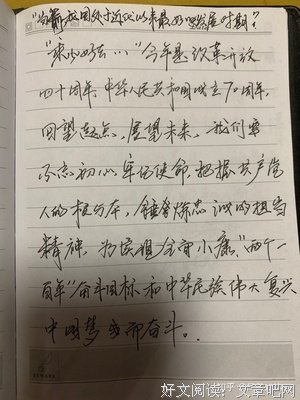 "当前我国处于近代以来最好的发展时期"
"乘心如弦…"今年是改革开放
四十周年、中华人民共和国成立70周年,
回望起点,展望未来,我们要
不忘初心、牢记使命,把握共产党
人的根与本,锤炼忠诚的担当
精神,为实现全面小康"两个一
百年"奋斗目标和中华民族伟大复兴
中国梦而奋斗。
好文阅读:文章吧网